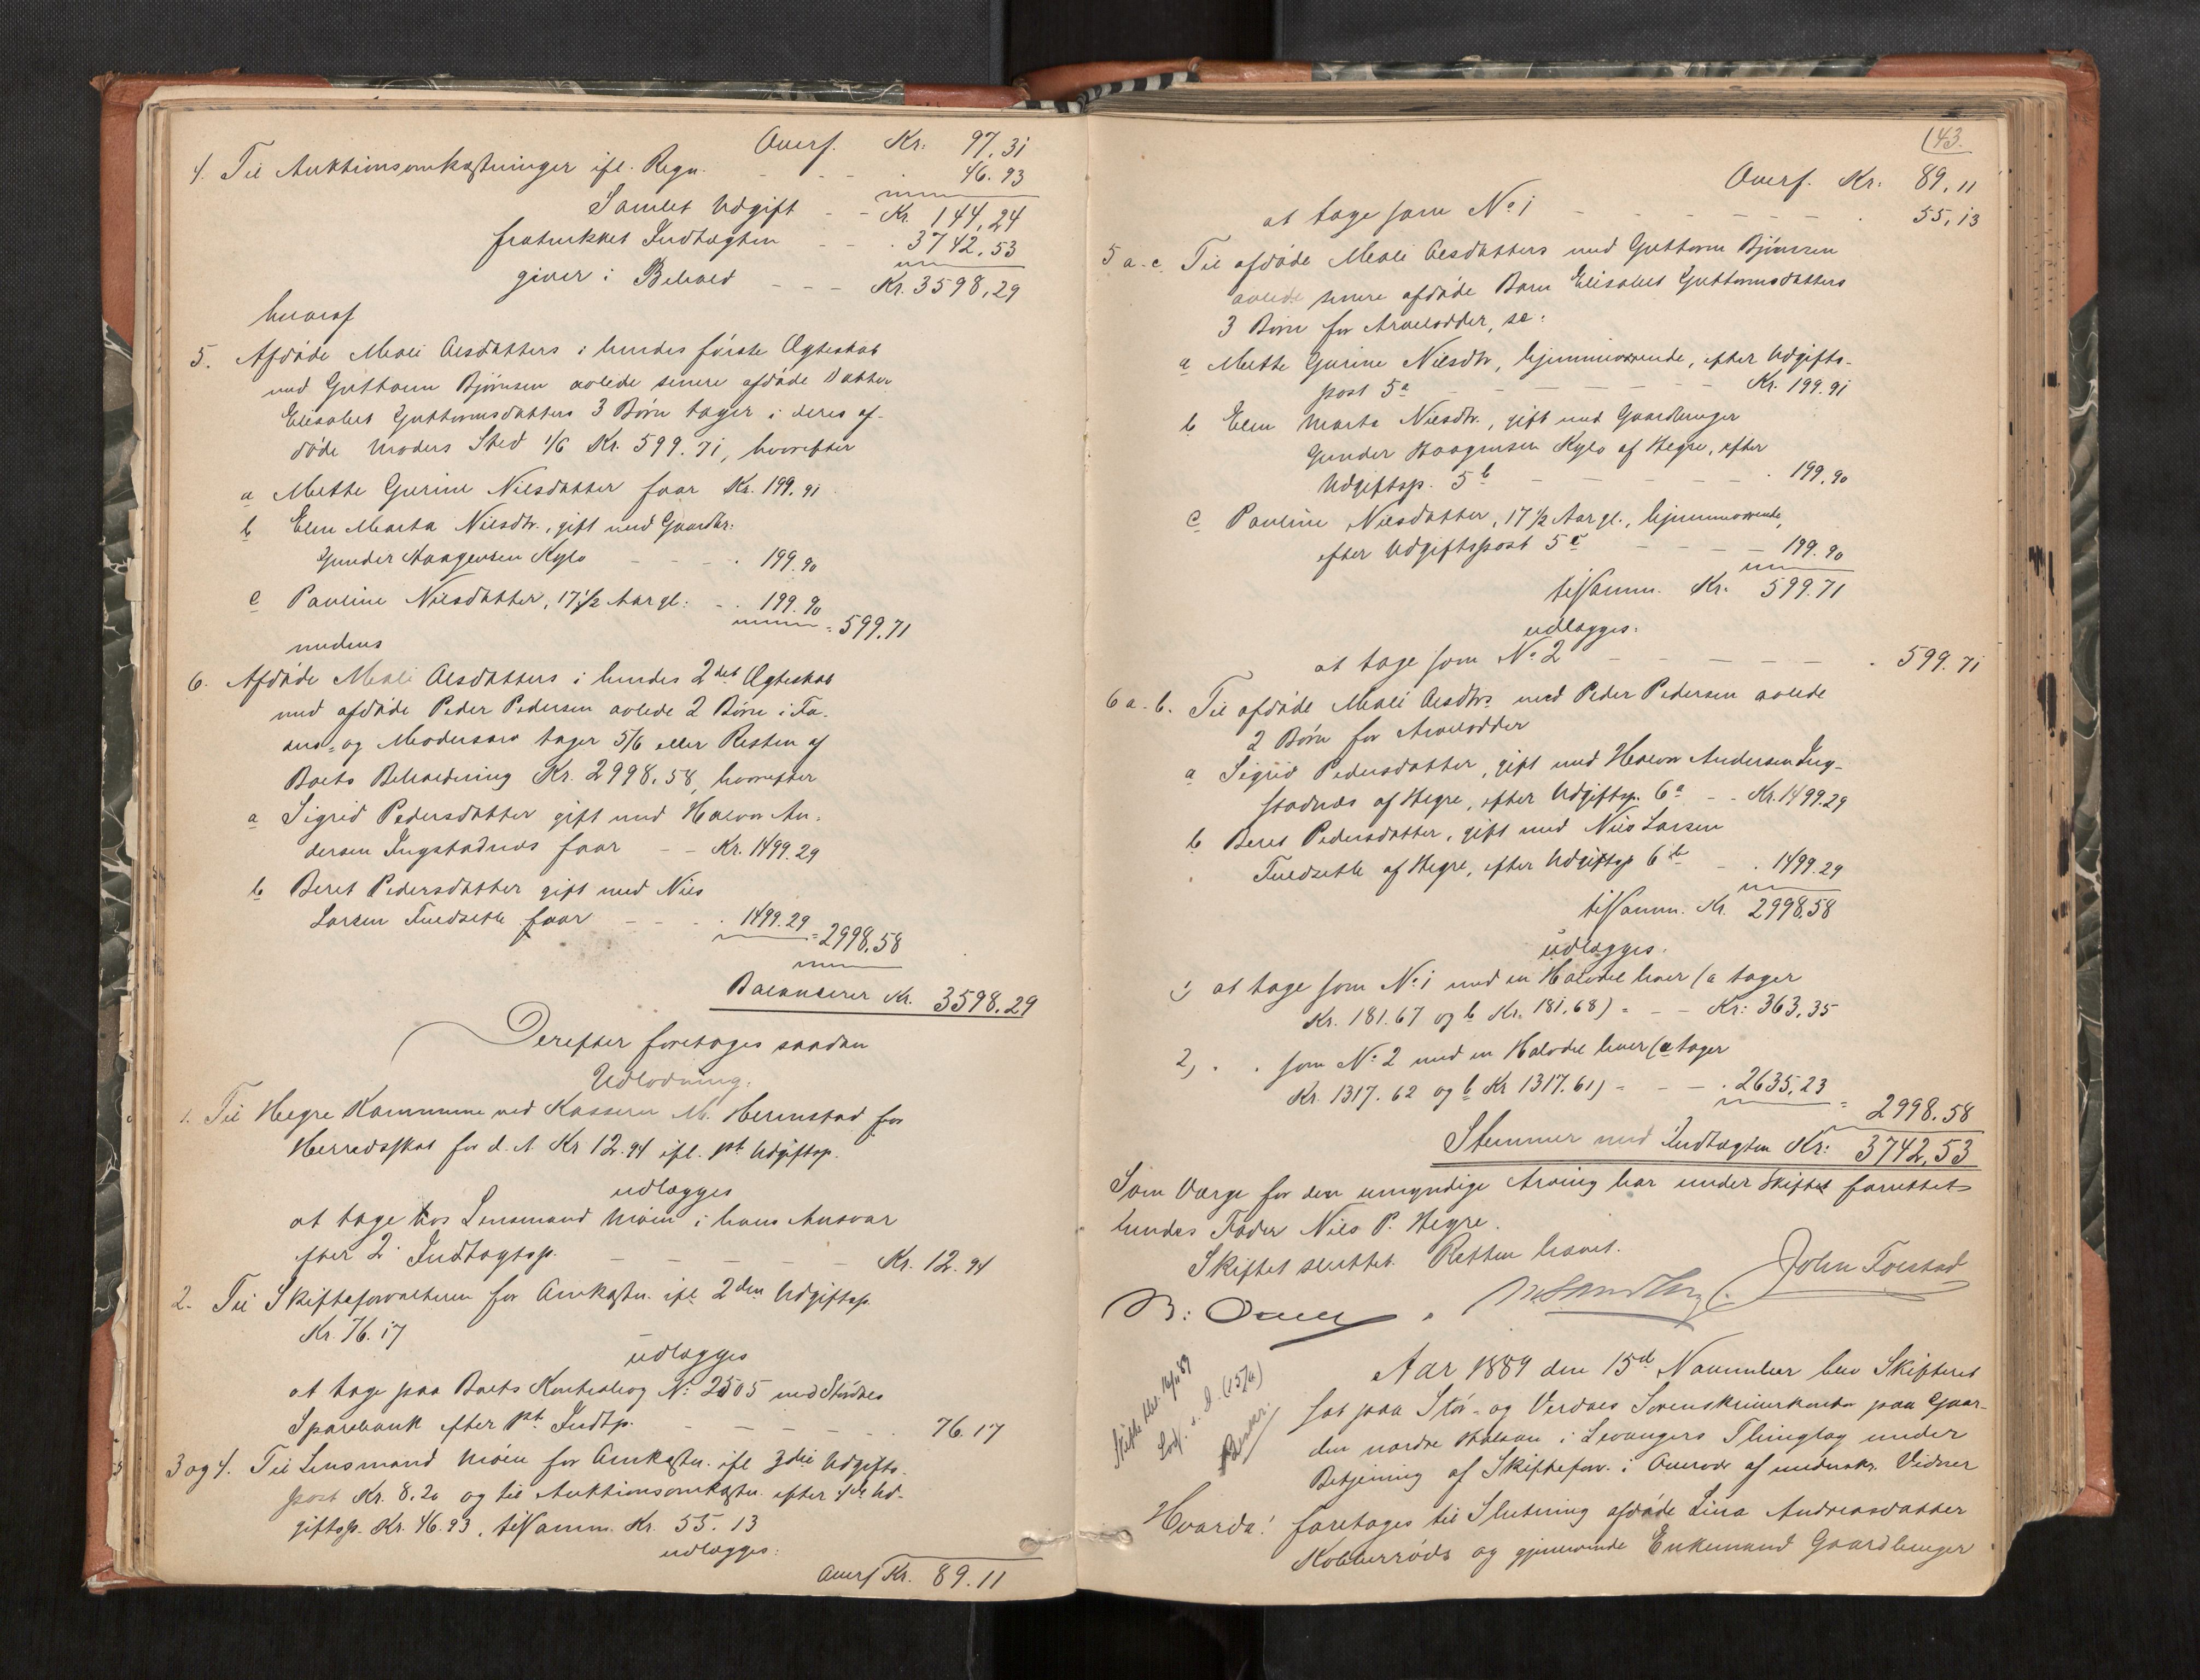 Overf. Kr. 97.31
4. Til Auktionsomkostninger ifl. Regn. - - - 46.93
Samlet Udgift - - Kr. 144,24
fratrukket Indtægten - - 3742,53
giver i Behold - - - Kr. 3598,29
hvoraf
5. Afdøde Mali Olsdatters i hendes første Ægteskab
med Guttorm Bjørnsen avlede senere afdøde Datter
Elisabet Guttormsdatters 3 Børn tager i deres af-
døde Moders Sted 1/6 Kr. 599.71, hvorefter
a Mette Gurine Nilsdatter faar Kr. 199.91
b Elen Marta Nilsdtr., gift med Gaardbr:
Gunder Haagensen Kylo - - - 199.90
c Pauline Nilsdatter, 17 1/2 Aar gl: - . 199.90 = 599,71
medens
6. Afdøde Mali Olsdatters i hendes 2det Ægteskab
med afdøde Peder Pedersen avlede 2 Børn i Fa-
ders- og Modersarv tager 5/6 eller Resten af
Boets Beholdning Kr. 2998,58, hvorefter
a Sigrid Pedersdatter gift med Halvor An-
dersen Ingstadnæs faar - - Kr. 1499.29
b Beret Pedersdatter gift med Nils
Larsen Fuldsetli faar - - - 1499.29 = 2998,58
Balancerer Kr. 3598.29
Derefter foretoges saadan
Udlodning:
1. Til Hegre Kommune ved Kasserer M. Hermstad for
Herredsskat for d. A. Kr 12.94 ifl. 1ste Udgiftsp.
udlægges
at tage hos Lensmand Moen i hans Ansvar
efter 2' Indtægtsp. - - - - Kr. 12.94
2. Til Skifteforvalteren for Omkostn. ifl. 2den Udgiftsp.
Kr. 76.17
udlægges
at tage paa Boets Kontrabog No. 2505 med Stjørdals
Sparebank efter 1ste Indtp. - - - - 76.17
3 og 4. Til Lensmand Moen for Omkostn. ifl 3die Udgifts-
post Kr. 8.20 og til Auktionsomkostn. efter 4de Ud-
giftsp. Kr. 46.93, tilsamm. Kr. 55.13
udlægges:
Overf Kr. 89.11
143.
Overf. Kr: 89,11
at tage som No 1 - - - - - - 55,13
5 a-c. Til afdøde Mali Olsdatters med Guttorm Bjørnsen
avlede senere afdøde Barn Elisabet Guttormsdatters
3 Børn for Arvelodder, se:
a Mette Gurine Nilsdtr, hjemmeværende, efter Udgifts-
post 5a - - - - - Kr. 199.91
b Elen Marta Nilsdtr., gift med Gaardbruger
Gunder Haagensen Kylo af Hegre, efter
Udgiftsp. 5b - - - - - 199,90
c Pauline Nilsdatter, 17 1/2 Aar gl., hjemmeværende,
efter Udgiftspost 5c - - - - 199.90
tilsamm. Kr. 599.71
udlægges:
at tage som No 2 - - - - - . 599.71
6 a-b. Til afdøde Mali Olsdtrs med Peder Pedersen avlede
2 Børn for Arvelodder
a Sigrid Pedersdatter, gift med Halvor Andersen Ing-
stadnæs af Hegre, efter Udgiftsp. 6a - - Kr. 1499.29
b Beret Pedersdatter, gift med Nils Larsen
Fuldsetli af Hegre, efter Udgiftsp 6b - . 1499.29
tilsamm. Kr. 2998,58
udlægges.
1) at tage som No 1 med en Halvdel hver (a tager
Kr. 181.67 og b Kr. 181,68) = - - Kr: 363,35
2) . . som No 2 med en Halvdel hver (a tager
Kr. 1317.62 og b Kr 1317.61) = - - . 2635,23 = 2998.58
Stemmer med Indtægten Kr: 3742,53
Som Værge for den umyndige Arving har under Skiftet forrettet
hendes Fader Nils P. Hegre.
Skiftet sluttet. Retten hævet.
John Forstad
Aar 1889 den 15de November blev Skifteret
sat paa Stør- og Verdals Sorenskriverkontor paa Gaar-
den nordre Halsan i Levangers Thinglag under
Betjening af Skifteforv. i Overvær af undersk. Vidner
Hvorda! foretoges til Slutning afdøde Lina Andreasdatter
Kolberrøds og gjenlevende Enkemand Gaardbruger